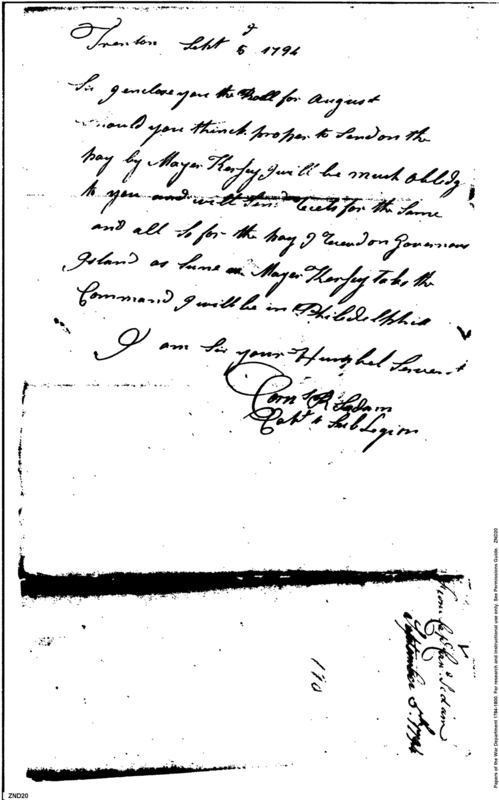 Trenton Sept 5d 1794
Sir I enclose you the Roll for August
Should you thinck proper to Send on the
pay by Mayer Kersey I will be much Obledg
to you and will Send Receets for the Same
and all So for the pay I Receved on Governours
Island as Sune as Mayer Kersey Takes the
Command I will be in Philedelphia
I am Sir your Humbel Servent
Corns R Sedam
Capt 1 Sub Legion
From Captain Sedam
September 5th 1794
170
Papers of the War Department 1784-1800. For research and instructional use only. See Permissions Guide. ZND20
ZND20